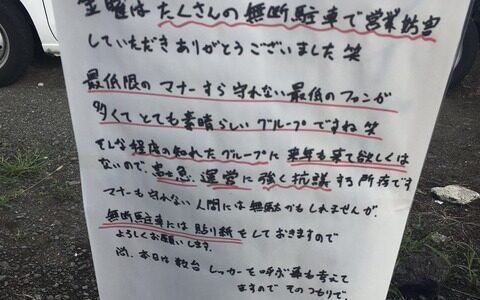 金曜はたくさんの無断駐車で営業妨害
していただきありがとうございました笑
最低限のマナーすら守れない最低のファンが
多くてとても素晴らしいグループですね笑
そんな程度の知れたグループに来年も来て欲しくは
ないので、富士急、運営に強く抗議する所存です
マナーも守れない人間には無駄かもしれませんが、
無断駐車には貼り紙をしておきますので
よろしくお願いします。
尚、本日は数台レッカーを呼ぶ事も考えて
ますのでそのつもりで